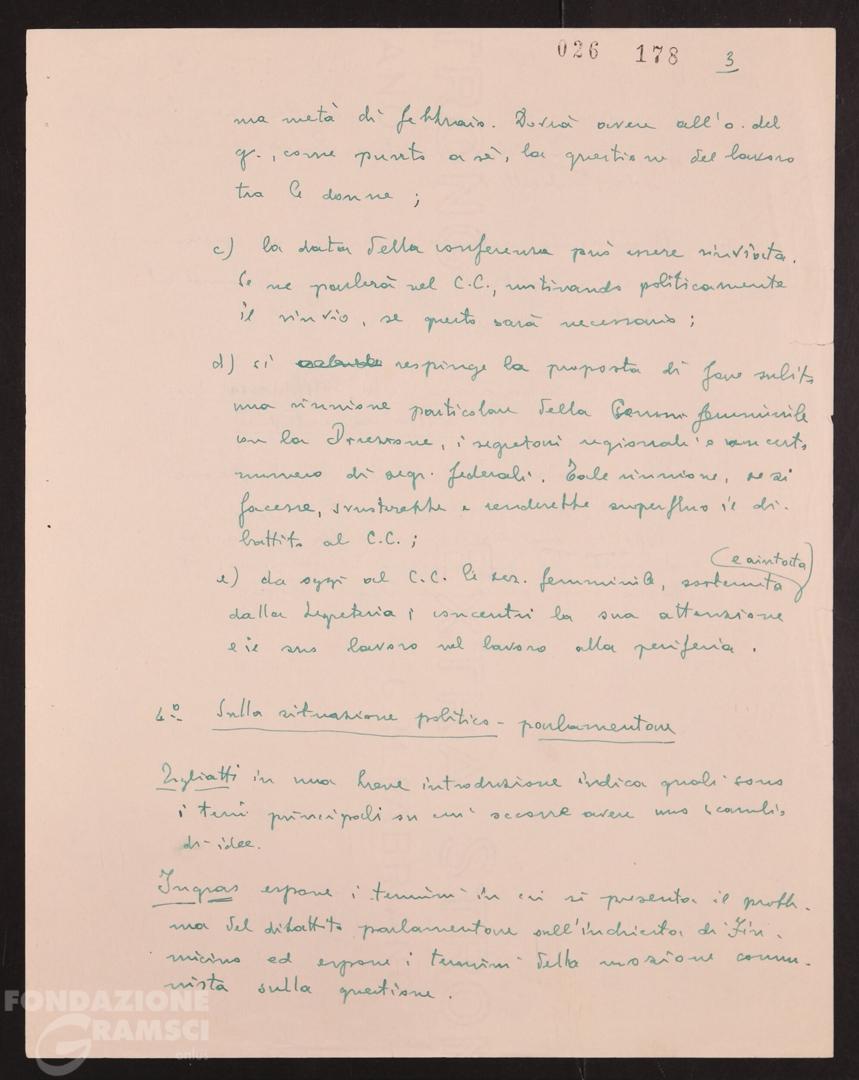 026 178 3
ma metà di febbraio. Dovrà avere all'o. del
g., come punto a sè, la questione del lavoro
tra le donne;
c) la data della conferenza può essere rinviata.
Se ne parlerà nel C.C., motivando politicamente
il rinvio, se questo sarà necessario;
d) si respinge la proposta di fare subito
una riunione particolare della Comm. femminile
con la Direzione, i segretari regionali e un certo
numero di segr. federali. Tale riunione, se si
facesse, svuoterebbe e renderebbe superfluo il di-
battito al C.C.;
e) da oggi al C.C. la sez. femminile, sostenuta (e aiutata)
dalla Segreteria, concentri la sua attenzione
e il suo lavoro nel lavoro alla periferia.
4º- Sulla situazione politico-parlamentare
Togliatti in una breve introduzione indica quali sono
i temi principali su cui occorre avere uno scambio
di idee.
Ingrao espone i termini in cui si presenta il proble-
ma del dibattito parlamentare sull'inchiesta di Fiu-
micino ed espone i termini della mozione comu-
nista sulla questione.
FONDAZIONE
GRAMSCI
onlus